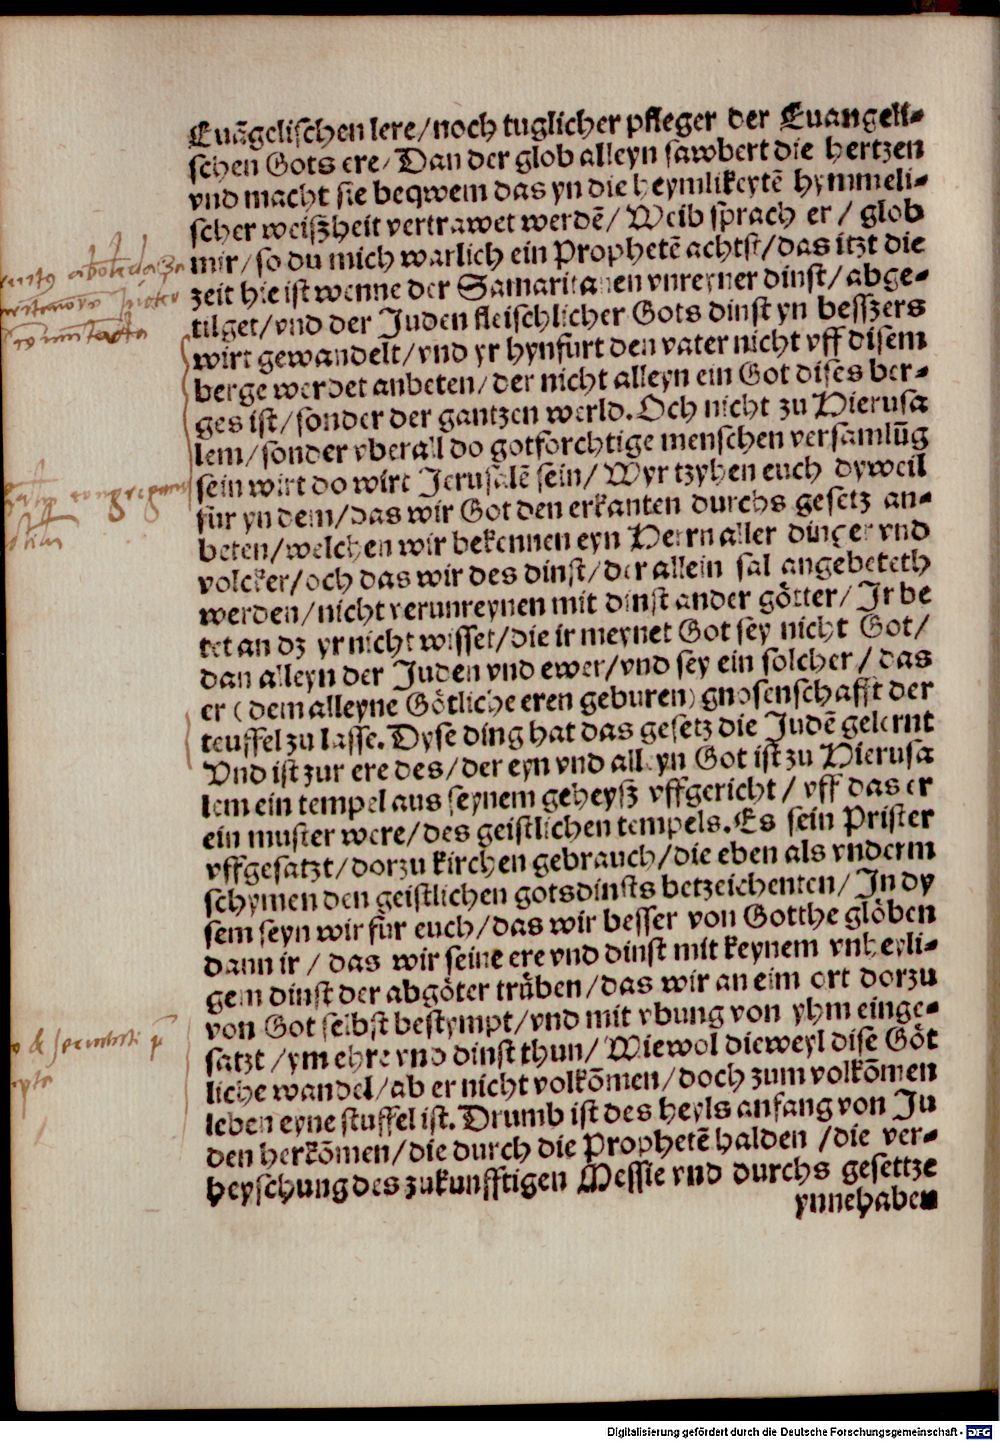 Euãgelischen lere/noch tuglicher pfleger der Euangeli-
schen Gots ere/ Dan der glob alleyn sawbert die hertzen
vnd macht sie beqwem das yn die heymlikeytẽ hymmeli-
scher weißheit vertrawet werdẽ/ Weib sprach er / glob
mir/ so du mich warlich ein Prophetẽ achtst/das itzt die
zeit hie ist wenne der Samaritanen vnreyner dinst/ abge-
tilget/vnd der Juden fleischlicher Gots dinst yn besszers
wirt gewandelt/vnd yr hynfurt den vater nicht vff disem
berge werdet anbeten/der nicht alleyn ein Got dises ber-
ges ist/sonder der gantzen werld. Och nicht zu Hierusa
lem/sonder vberall do gotforchtige menschen versamlũg
sein wirt do wirt Jerusalẽ sein/ Wyr tzyhen euch dyweil
für yn dem/das wir Got den erkanten durchs gesetz an-
beten/welchen wir bekennen eyn Herrn aller dinger vnd
volcker/och das wir des dinst/der allein sal angebeteth
werden/nicht verunreynen mit dinst ander götter/ Ir be
tet an dz yr nicht wisset/die ir meynet Got sey nicht Got/
dan alleyn der Juden vnd ewer/vnd sey ein solcher / das
er (dem alleyne Götliche eren geburen) gnosenschafft der
teuffel zu lasse. Dyse ding hat das gesetz die Judẽ gelernt
Vnd ist zur ere des/der eyn vnd alleyn Got ist zu Hierusa
lem ein tempel aus seynem geheysz vffgericht / vff das er
ein muster were/des geistlichen tempels. Es sein Prister
vffgesatzt/dorzu kirchen gebrauch/die eben als vnderm
schymen den geistlichen gotsdinsts betzeichenten/ In dy
sem seyn wir für euch/das wir besser von Gotthe glöben
dann ir / das wir seine ere vnd dinst mit keynem vnheyli-
gem dinst der abgöter trüben/das wir an eim ort dorzu
von Got selbst bestympt/vnd mit vbung von yhm einge-
satzt /ym ehre vnd dinst thun/ Wiewol dieweyl dise Göt
liche wandel/ab er nicht volkõmen/doch zum volkõmen
leben eyne stuffel ist. Drumb ist des heyls anfang von Ju
den herkõmen/die durch die Prophetẽ halden /die ver-
heyschung des zukunfftigen Messie vnd durchs gesettze
ynnehaben
Digitalisierung gefördert durch die Deutsche Forschungsgemeinschaft - DFG